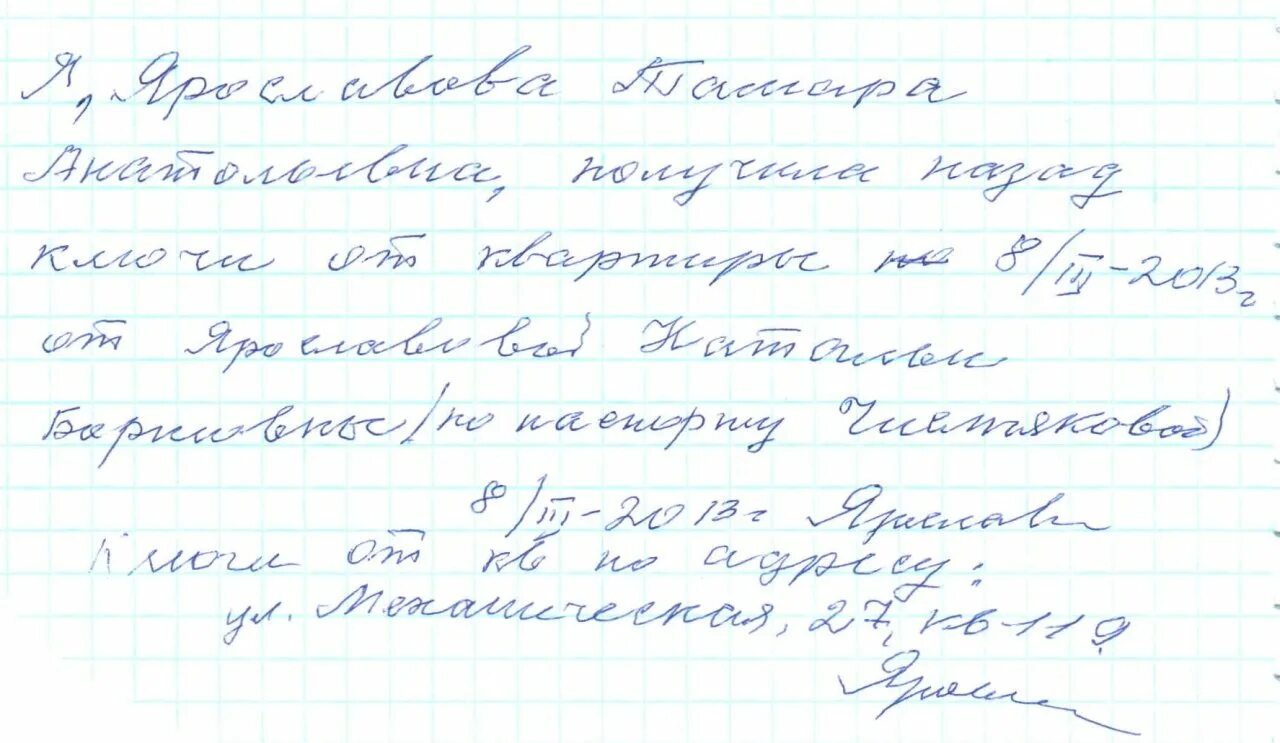 Я, Ярославова Тамара
Анатольевна, получила назад
ключи от квартиры 8/III-2013г
от Ярославовой Натальи
Борисовны (по паспорту Чистяковой)
8/III-2013г Ярослав
Ключи от кв по адресу:
ул. Механическая, 27, кв-119.